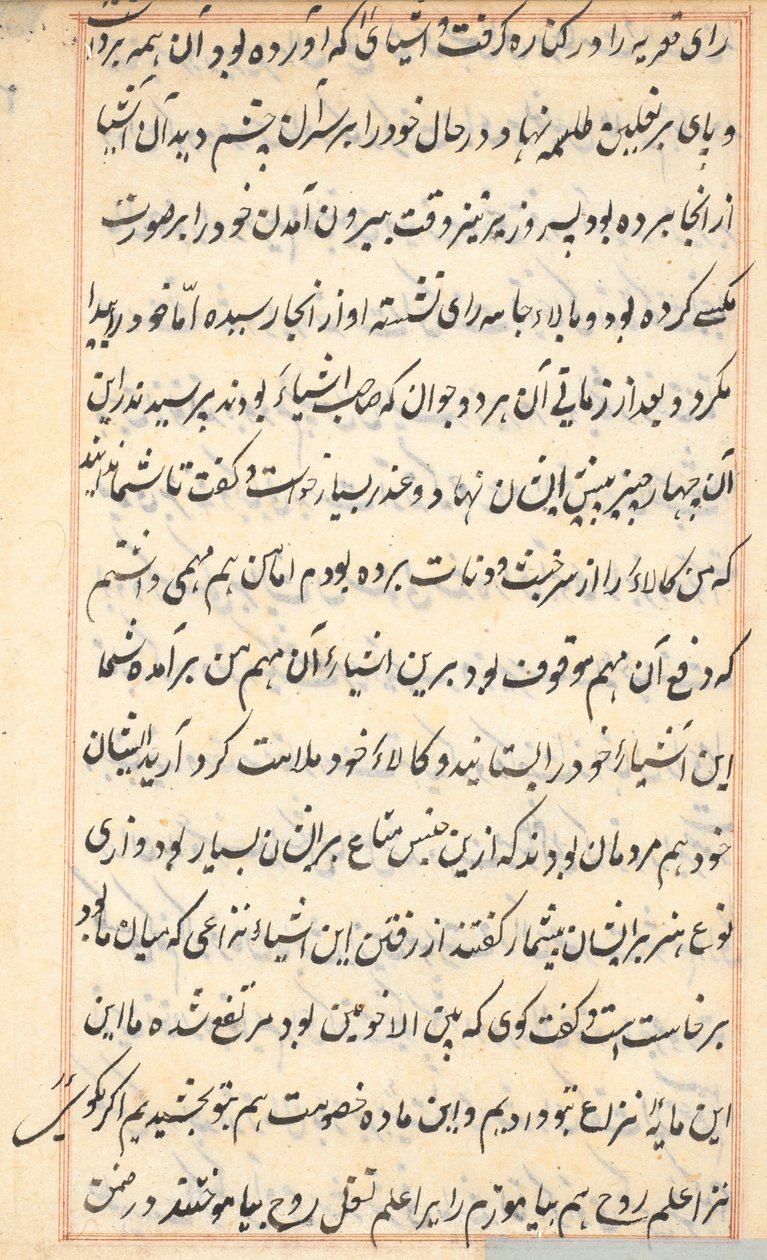 رای قعریه را در کناره گرفت و اشیای را که آورده بود آن همه برداشت
و پای بر نعلین طلسم نهاد در حال خود را بر سر آن چشم دید آن اشیا
از انجا برده بود پسر وزیر نیز وقت بیرون آمدن خود را بر صورت
مگسے کرده بود و بالاء جامه رای نشسته او از انجا رسیده امّا خود را پیدا
مکرد و بعد از زمانی آن هر دو جوان که صاحب اشیاء بودند پرسیدند راین
آن چهار چیز پیش ایشان نهاد و عذر بسیار خواست و گفت تا شما ندانید
که من کالاء را از سر خبث و دنات برده بودم اما من هم مهمی داشتم
که دفع آن مهم موقوف بود برین اشیاء آن مهم من برآمده شما
این اشیاء خود را بستانید و کالاء خود ملامت کرد آرید ایشان
خود هم مردمان بودند که ازین جنس متاع بر ایشان بسیار بود و ازی
نوع هنر بر ایشان بیشمار گفتند از رفتن این اشیاء نزاعی که میان ما بود
برخاست است و گفت کوی که بین الاخوین بود مرتفع شده ما این
این مایهٔ نزاع بتو دادیم و این ماده خصومت هم بتو بخشیدیم اکر بکوئی
ترا علم روح هم بیاموزم رایرا علم نقل روح بیاموختند در ضمن